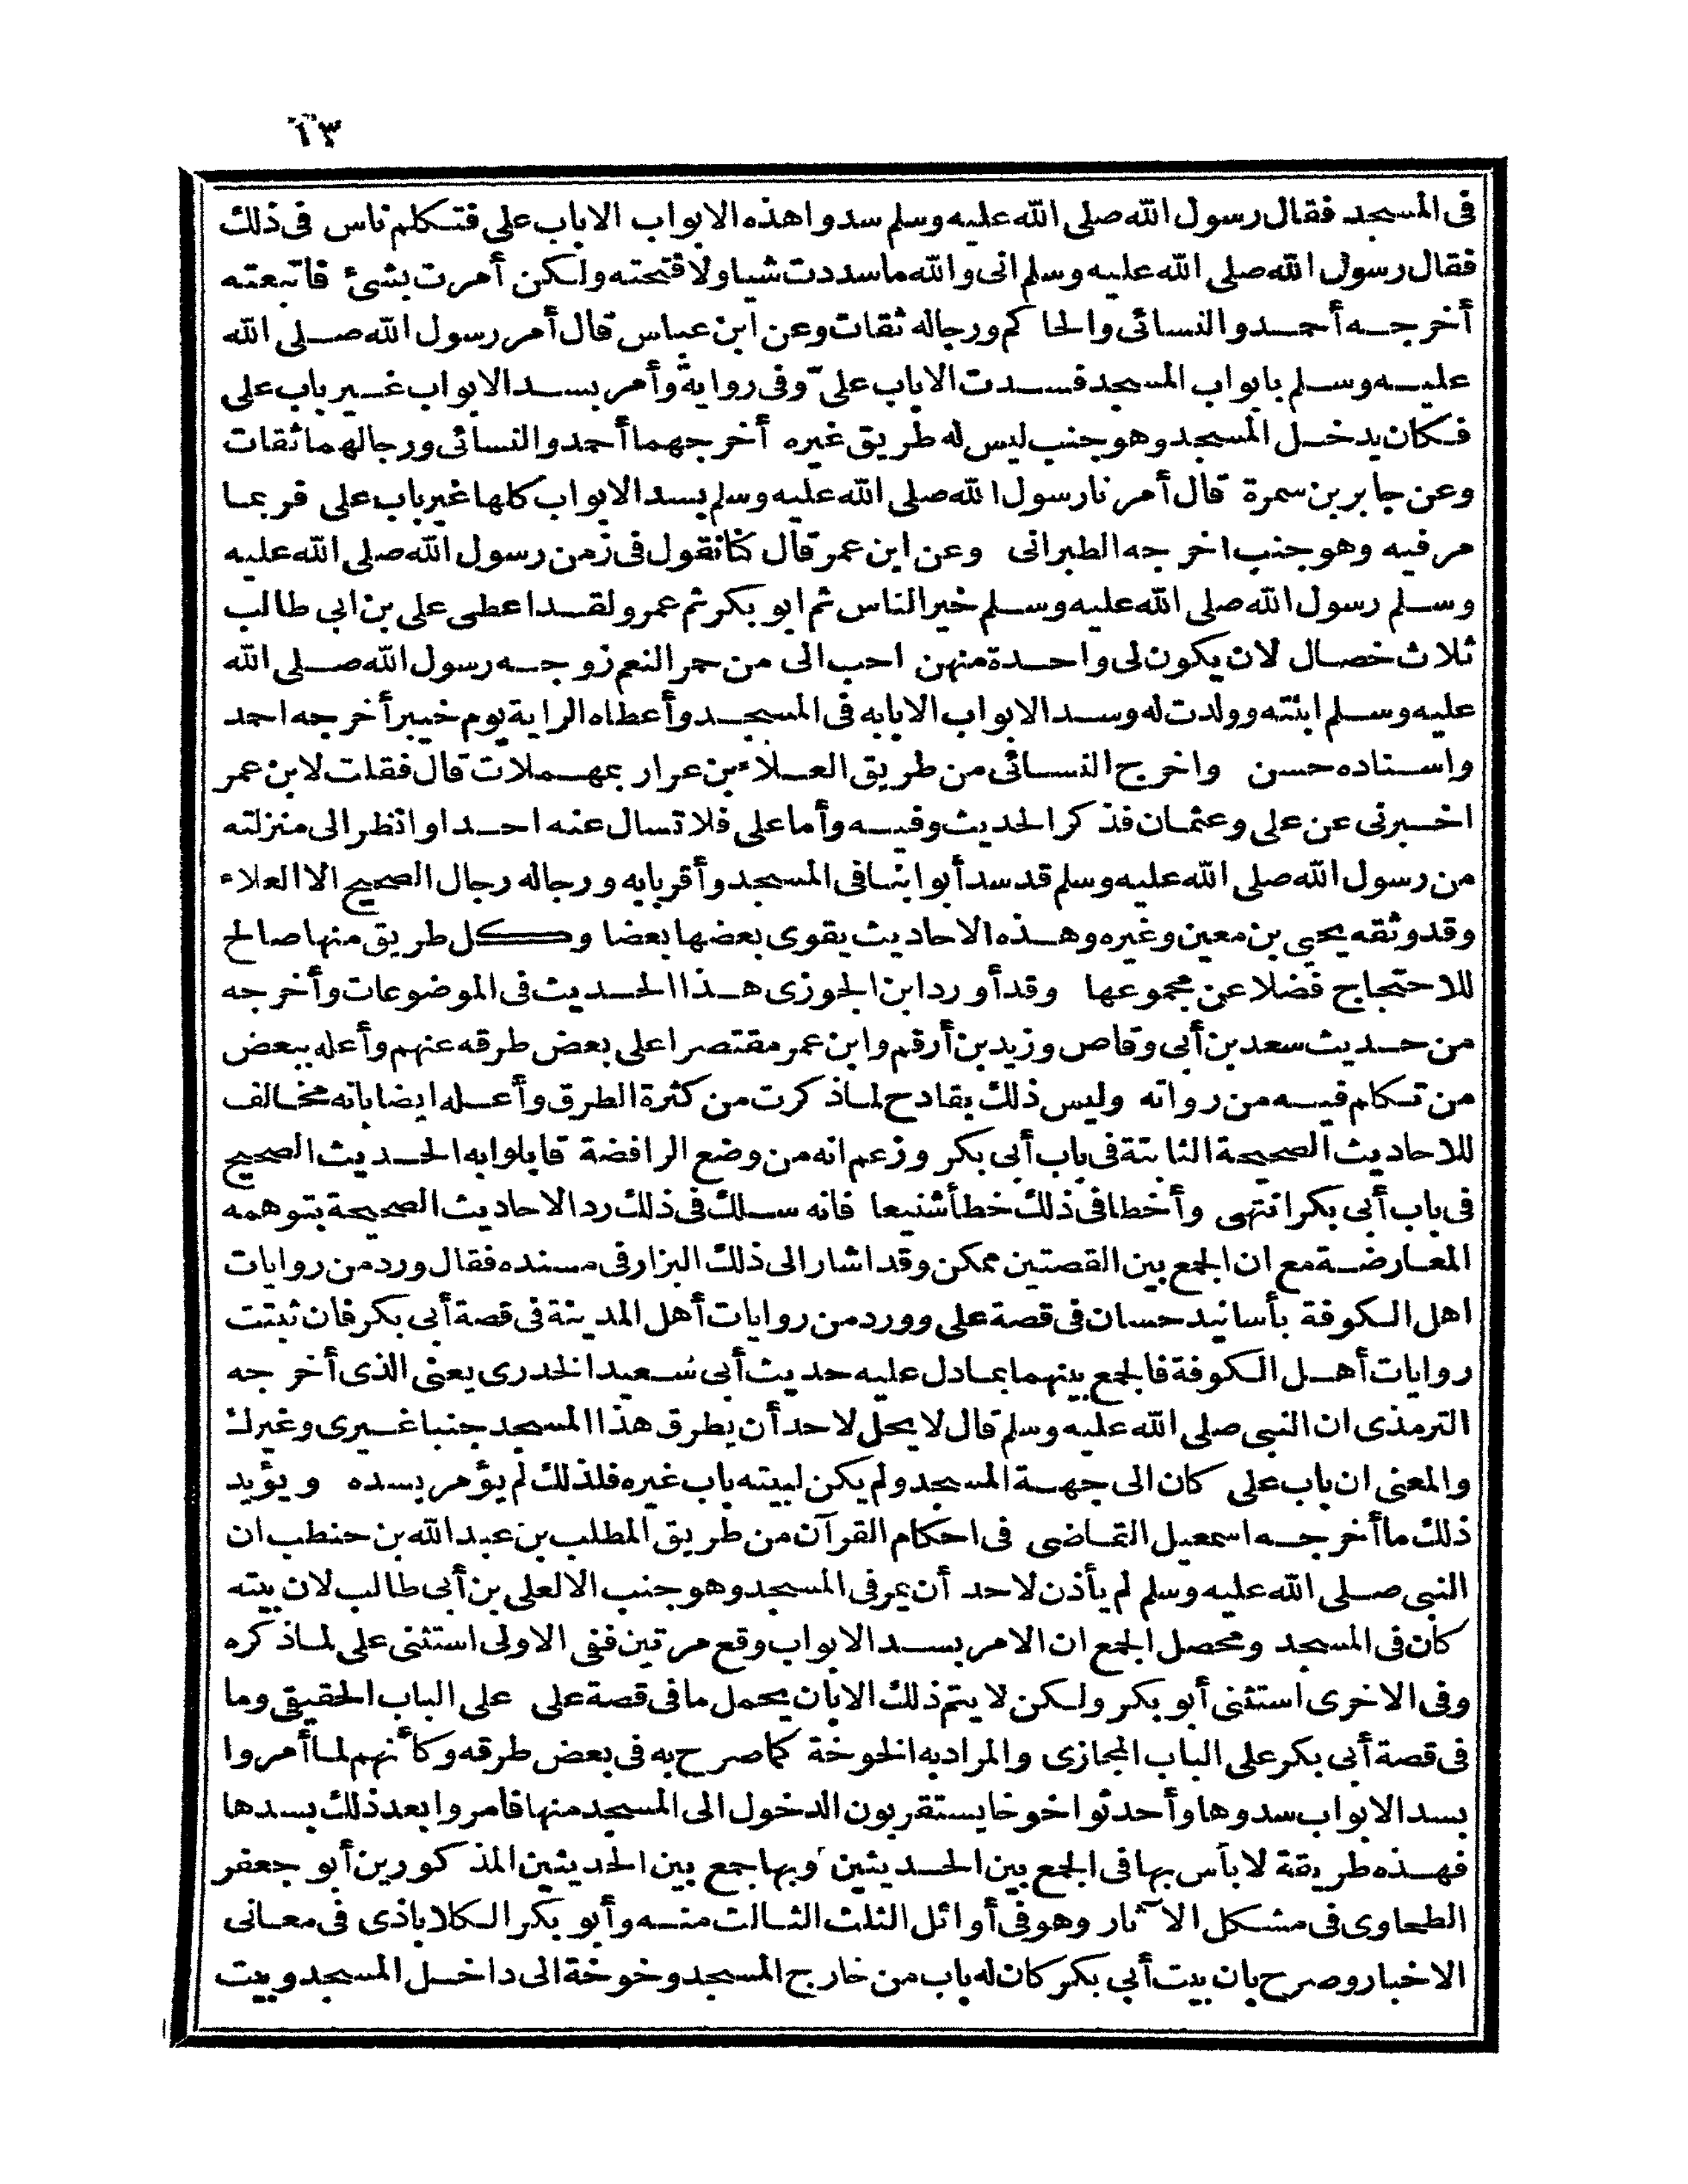 ١٣
فى المسجد فقال رسول الله صلى الله عليه وسلم سدوا هذه الابواب الاباب على فتكلم ناس فى ذلك
فقال رسول الله صلى الله عليه وسلم انى والله ما سددت شيا ولا فتحته ولكن أمرت بشئ فاتبعته
أخرجه أحمد والنسائى والحاكم ورجاله ثقات وعن ابن عباس قال أمر رسول الله صلى الله
عليه وسلم بابواب المسجد فسدت الاباب علىّ وفى رواية وأمر بسد الابواب غير باب على
فكان يدخل المسجد وهو جنب ليس له طريق غيره أخرجهما أحمد والنسائى ورجالهما ثقات
وعن جابر بن سمرة قال أمرنا رسول الله صلى الله عليه وسلم بسد الابواب كلها غير باب على فربما
مر فيه وهو جنب اخرجه الطبرانى وعن ابن عمر قال كنا نقول فى زمن رسول الله صلى الله عليه
وسلم رسول الله صلى الله عليه وسلم خير الناس ثم ابو بكر ثم عمر ولقد اعطى على بن ابى طالب
ثلاث خصال لان يكون لى واحدة منهن احب الى من حمر النعم زوجه رسول الله صلى الله
عليه وسلم ابنته وولدت له وسد الابواب الابابه فى المسجد وأعطاه الراية يوم خيبر أخرجه احمد
واسناده حسن واخرج النسائى من طريق العلاء بن عرار بمهملات قال فقلت لابن عمر
اخبرنى عن على وعثمان فذكر الحديث وفيه وأما على فلا تسال عنه احدا وانظر الى منزلته
من رسول الله صلى الله عليه وسلم قد سد أبوابنا فى المسجد وأقر بابه ورجاله رجال الصحيح الا العلاء
وقد وثقه يحيى بن معين وغيره وهذه الاحاديث يقوى بعضها بعضا وكل طريق منها صالح
للاحتجاج فضلا عن مجموعها وقد أورد ابن الجوزى هذا الحديث فى الموضوعات وأخرجه
من حديث سعد بن أبى وقاص وزيد بن أرقم وابن عمر مقتصرا على بعض طرقه عنهم وأعله ببعض
من تكلم فيه من رواته وليس ذلك بقادح لما ذكرت من كثرة الطرق وأعله ايضا بانه مخالف
للاحاديث الصحيحة الثابتة فى باب أبى بكر وزعم انه من وضع الرافضة قابلوا به الحديث الصحيح
فى باب أبى بكر انتهى وأخطا فى ذلك خطأ شنيعا فانه سلك فى ذلك رد الاحاديث الصحيحة بتوهمه
المعارضة مع ان الجمع بين القصتين ممكن وقد اشار الى ذلك البزار فى مسنده فقال ورد من روايات
اهل الكوفة بأسانيد حسان فى قصة على وورد من روايات أهل المدينة فى قصة أبى بكر فان ثبتت
روايات أهل الكوفة فالجمع بينهما بما دل عليه حديث أبى سعيد الخدرى يعنى الذى أخرجه
الترمذى ان النبى صلى الله عليه وسلم قال لا يحل لاحد أن يطرق هذا المسجد جنبا غيرى وغيرك
والمعنى ان باب على كان الى جهة المسجد ولم يكن لبيته باب غيره فلذلك لم يؤمر بسده ويؤيد
ذلك ما أخرجه اسمعيل القاضى فى احكام القرآن من طريق المطلب بن عبد الله بن حنطب ان
النبى صلى الله عليه وسلم لم يأذن لاحد أن يمر فى المسجد وهو جنب الا لعلى بن أبى طالب لان بيته
كان فى المسجد ومحصل الجمع ان الامر بسد الابواب وقع مرتين ففى الاولى استثنى على لما ذكره
وفى الاخرى استثنى أبو بكر ولكن لا يتم ذلك الا بان يحمل ما فى قصة على على الباب الحقيقى وما
فى قصة أبى بكر على الباب المجازى والمراد به الخوخة كما صرح به فى بعض طرقه وكأنهم لما أمروا
بسد الابواب سدوها وأحدثوا خوخا يستقربون الدخول الى المسجد منها فأمروا بعد ذلك بسدها
فهذه طريقة لا بأس بها فى الجمع بين الحديثين وبها جمع بين الحديثين المذكورين أبو جعفر
الطحاوى فى مشكل الآثار وهو فى أوائل الثلث الثالث منه وأبو بكر الكلاباذى فى معانى
الاخبار وصرح بان بيت أبى بكر كان له باب من خارج المسجد وخوخة الى داخل المسجد وبيت